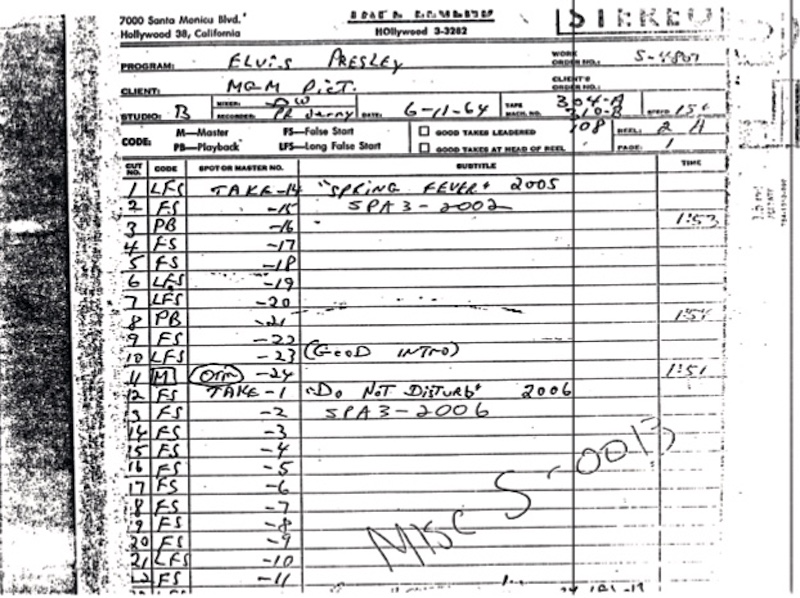 7000 Santa Monica Blvd.
Hollywood 38, California
HOllywood 3-3282
STEREO
PROGRAM: ELVIS PRESLEY
WORK ORDER NO.: S-4807
CLIENT: MGM PICT.
CLIENT'S ORDER NO.:
STUDIO: B MIXER: DW RECORDER: DATE: 6-11-64 TAPE MACH. NO. 304-A 310-B 108 SPEED
REEL: 2 A
PAGE: 1
CODE: M—Master FS—False Start
PB—Playback LFS—Long False Start
☐ GOOD TAKES LEADERED
☐ GOOD TAKES AT HEAD OF REEL
CUT NO. CODE SPOT OR MASTER NO. SUBTITLE TIME
1 LFS TAKE-14 "SPRING FEVER" 2005
2 FS -15 SPA3-2002
3 PB -16 1:53
4 FS -17
5 FS -18
6 LFS -19
7 LFS -20
8 PB -21
9 FS -22
10 LFS -23 (GOOD INTRO)
11 M -24 1:51
12 FS TAKE-1 "DO NOT DISTURB" 2006
13 FS -2 SPA3-2006
14 FS -3
15 FS -4
16 FS -5
17 FS -6
18 FS -7
19 FS -8
20 FS -9
21 LFS -10
22 FS -11
MISC